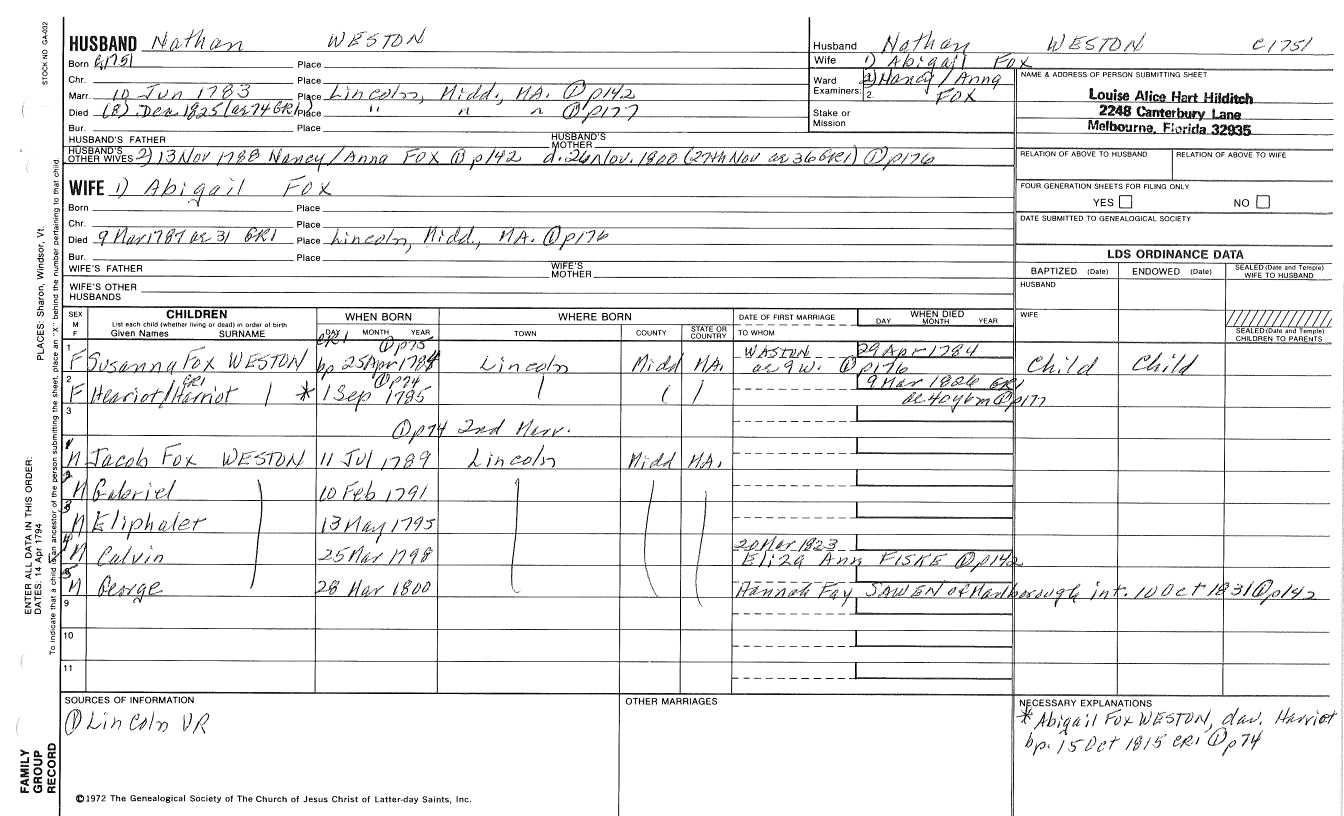 STOCK NO. GA-032
HUSBAND Nathan WESTON
Born c1751 Place
Chr. Place
Marr. 10 Jun 1783 Place Lincoln, Midd., MA. ① p142
Died (8) Dec. 1825 (ae 74 GR1) Place " " " ① p177
Bur. Place
HUSBAND'S FATHER HUSBAND'S MOTHER
HUSBAND'S OTHER WIVES 2) 13 Nov 1788 Nancy/Anna FOX ① p142 d. 26 Nov. 1800 (27th Nov ae 36 GR1) ① p176
Husband Nathan WESTON c1751
Wife 1) Abigail FOX
Ward 1. 2) Nancy/Anna
Examiners: 2. FOX
Stake or
Mission
NAME & ADDRESS OF PERSON SUBMITTING SHEET
Louise Alice Hart Hilditch
2248 Canterbury Lane
Melbourne, Florida 32935
RELATION OF ABOVE TO HUSBAND RELATION OF ABOVE TO WIFE
FOUR GENERATION SHEETS FOR FILING ONLY
YES NO
DATE SUBMITTED TO GENEALOGICAL SOCIETY
WIFE 1) Abigail FOX
Born Place
Chr. Place
Died 9 Mar 1787 ae 31 GR1 Place Lincoln, Midd., MA. ① p176
Bur. Place
WIFE'S FATHER WIFE'S MOTHER
WIFE'S OTHER
HUSBANDS
LDS ORDINANCE DATA
BAPTIZED (Date) ENDOWED (Date) SEALED (Date and Temple) WIFE TO HUSBAND
HUSBAND
WIFE
SEALED (Date and Temple) CHILDREN TO PARENTS
SEX
M
F
CHILDREN
List each child (whether living or dead) in order of birth
Given Names SURNAME
WHEN BORN
DAY MONTH YEAR
WHERE BORN
TOWN COUNTY STATE OR COUNTRY
DATE OF FIRST MARRIAGE
TO WHOM
WHEN DIED
DAY MONTH YEAR
CR1 ① p75
1 F Susanna Fox WESTON bp 25 Apr 1784 Lincoln Midd MA. WASTON 29 Apr 1784
ae 9 w. ① p176 Child Child
2 F Heariot/Harriot GR1 * 1 Sep 1785 ① p74 9 Mar 1826 GR1
ae 40 y 6 m ① p177
3 ① p74 2nd Marr.
1 M Jacob Fox WESTON 11 Jul 1789 Lincoln Midd MA.
2 M Gabriel 10 Feb 1791
3 M Eliphalet 13 May 1795
4 M Calvin 25 Mar 1798 20 Mar 1823
Eliza Ann FISKE ① p142
5 M George 28 Mar 1800 Hannah Fay SAWEN of Marlborough int. 10 Oct 1831 ① p142
9
10
11
SOURCES OF INFORMATION
① Lincoln VR
OTHER MARRIAGES
NECESSARY EXPLANATIONS
* Abigail Fox WESTON, dau. Harriot
bp. 15 Oct 1815 CR1 ① p74
©1972 The Genealogical Society of The Church of Jesus Christ of Latter-day Saints, Inc.
FAMILY
GROUP
RECORD
ENTER ALL DATA IN THIS ORDER:
DATES: 14 Apr 1794
PLACES: Sharon, Windsor, Vt.
To indicate that a child is an ancestor of the person submitting the sheet, place an "X" behind the number pertaining to that child